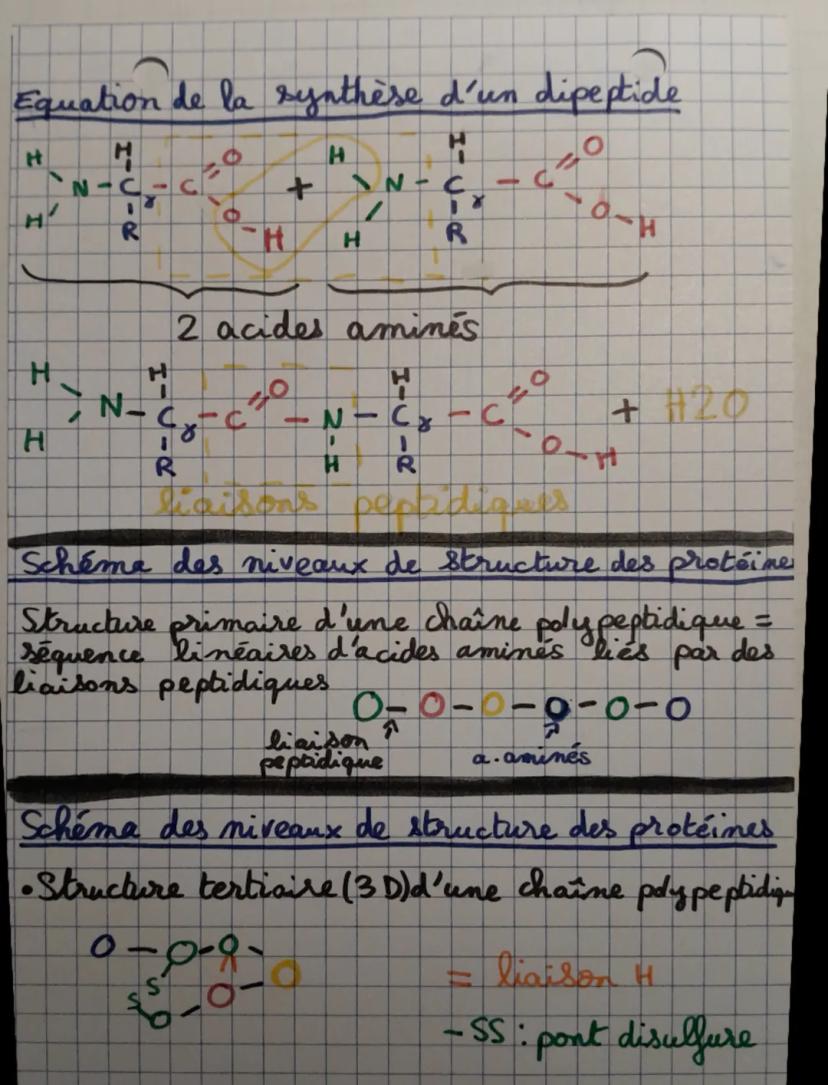 Equation de la synthèse d'un dipeptide
H H O H H O
N - Cγ - C + N - Cγ - C
H R O - H H R O - H
2 acides aminés
H H O H O
N - Cγ - C - N - Cγ - C + H2O
H R H R O - H
liaisons peptidiques
Schéma des niveaux de structure des protéine
Structure primaire d'une chaîne polypeptidique =
séquence linéaires d'acides aminés liés par des
liaisons peptidiques
liaison
peptidique a. aminés
Schéma des niveaux de structure des protéines
• Structure tertiaire (3D) d'une chaîne polypeptidiq
S
S
= liaison H
- SS : pont disulfure